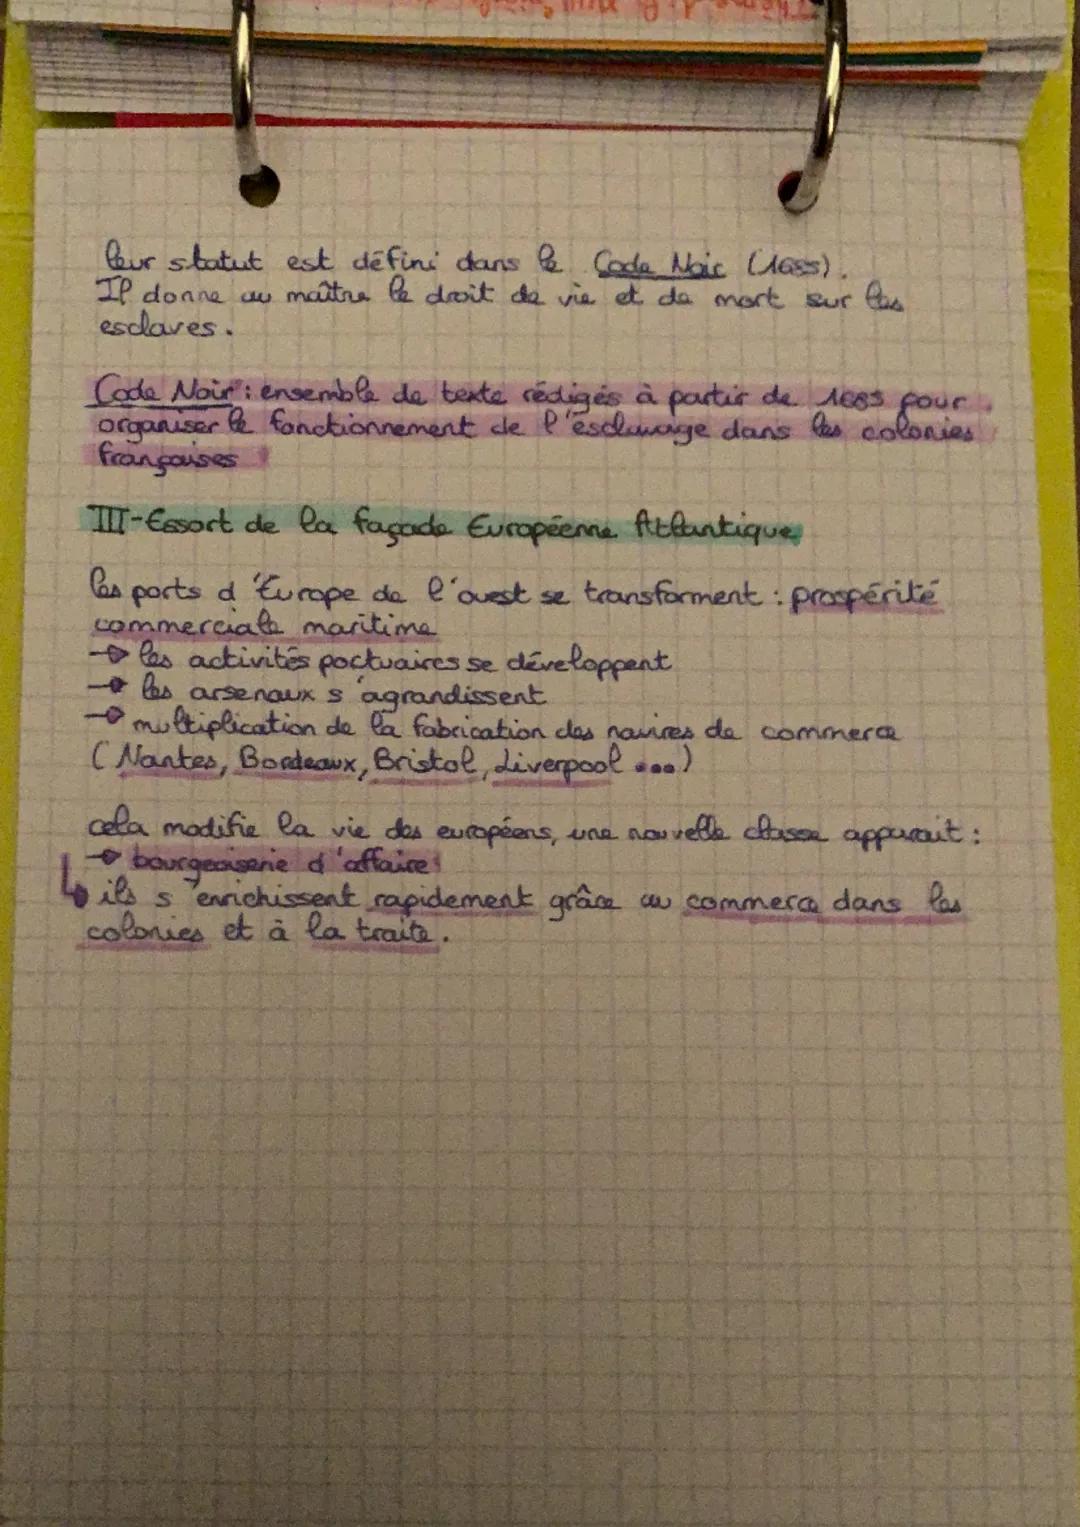 leur statut est défini dans le Code Noir (1685).
Il donne au maître le droit de vie et de mort sur les
esclaves.
Code Noir : ensemble de texte rédigés à partir de 1685 pour
organiser le fonctionnement de l'esclavage dans les colonies
françaises
III-Essort de la façade Européenne Atlantique
les ports d'Europe de l'ouest se transforment : prospérité
commerciale maritime
→ les activités portuaires se développent
→ les arsenaux s'agrandissent
→ multiplication de la fabrication des navires de commerce
(Nantes, Bordeaux, Bristol, Liverpool ...)
cela modifie la vie des européens, une nouvelle classe apparait :
→ bourgeoiserie d'affaire
↳ ils s'enrichissent rapidement grâce au commerce dans les
colonies et à la traite.